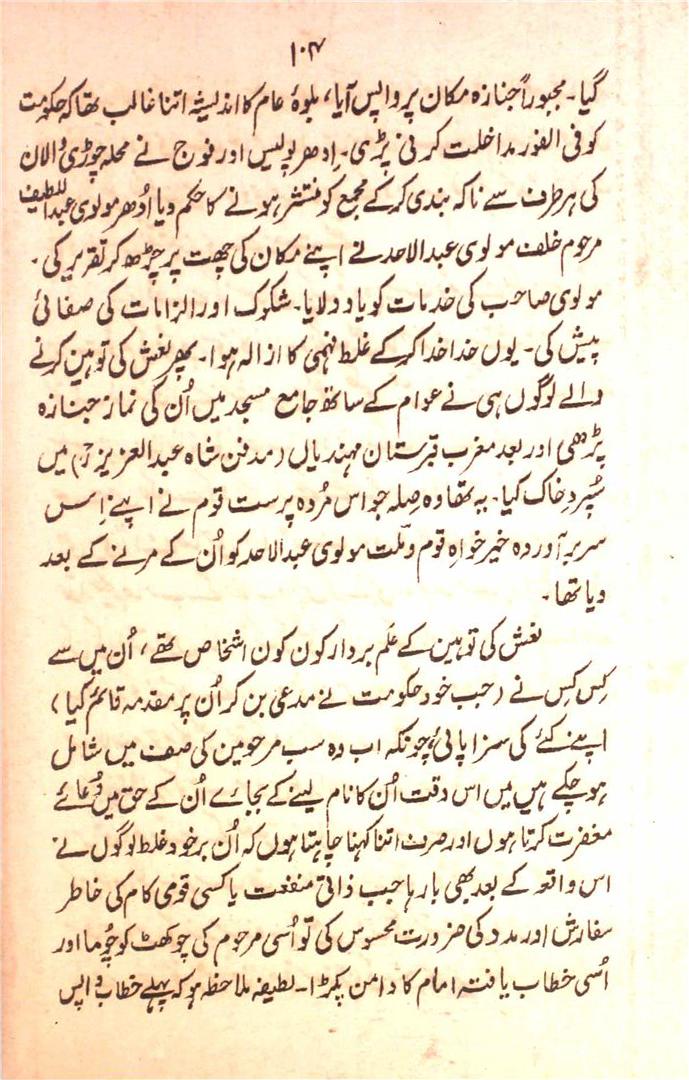 ۱۰۴
گیا۔ مجبوراً جنازہ مکان پر واپس آیا، بلوۂ عام کا اندیشہ اتنا غالب تھا کہ حکومت
کو فی الفور مداخلت کرنی پڑی۔ اِدھر پولیس اور فوج نے محلہ چوڑی والان
کی ہر طرف سے ناکہ بندی کرکے مجمع کو منتشر ہونے کا حکم دیا اُدھر مولوی عبداللطیف
مرحوم خلف مولوی عبدالاحد نے اپنے مکان کی چھت پر چڑھ کر تقریر کی۔
مولوی صاحب کی خدمات کو یاد دلایا۔ شکوک اور الزامات کی صفائی
پیش کی۔ یوں خدا خدا کرکے غلط فہمی کا ازالہ ہوا۔ پھر نعش کی توہین کرنے
والے لوگوں ہی نے عوام کے ساتھ جامع مسجد میں اُن کی نماز جنازہ
پڑھی اور بعد مغرب قبرستان مہندیاں (مدفن شاہ عبدالعزیزؒ) میں
سُپردِ خاک کیا۔ یہ تھا وہ صِلہ جو اس مُردہ پرست قوم نے اپنے اِس
سربرآوردہ خیر خواہِ قوم و ملّت مولوی عبدالاحد کو اُن کے مرنے کے بعد
دیا تھا۔
نعش کی توہین کے علَم بردار کون کون اشخاص تھے، اُن میں سے
کِس کِس نے (جب خود حکومت نے مدعی بن کر اُن پر مقدمہ قائم کیا)
اپنے کئے کی سزا پائی، چونکہ اب وہ سب مرحومین کی صف میں شامل
ہو چکے ہیں میں اس وقت اُن کا نام لینے کے بجائے اُن کے حق میں دُعائے
مغفرت کرتا ہوں اور صرف اتنا کہنا چاہتا ہوں کہ اُن برخود غلط لوگوں نے
اس واقعہ کے بعد بھی بارہا جب ذاتی منفعت یا کسی قومی کام کی خاطر
سفارش اور مدد کی ضرورت محسوس کی تو اُسی مرحوم کی چوکھٹ کو چُوما اور
اُسی خطاب یافتہ امام کا دامن پکڑا۔ لطیفہ ملاحظہ ہو کہ پہلے خطاب واپس